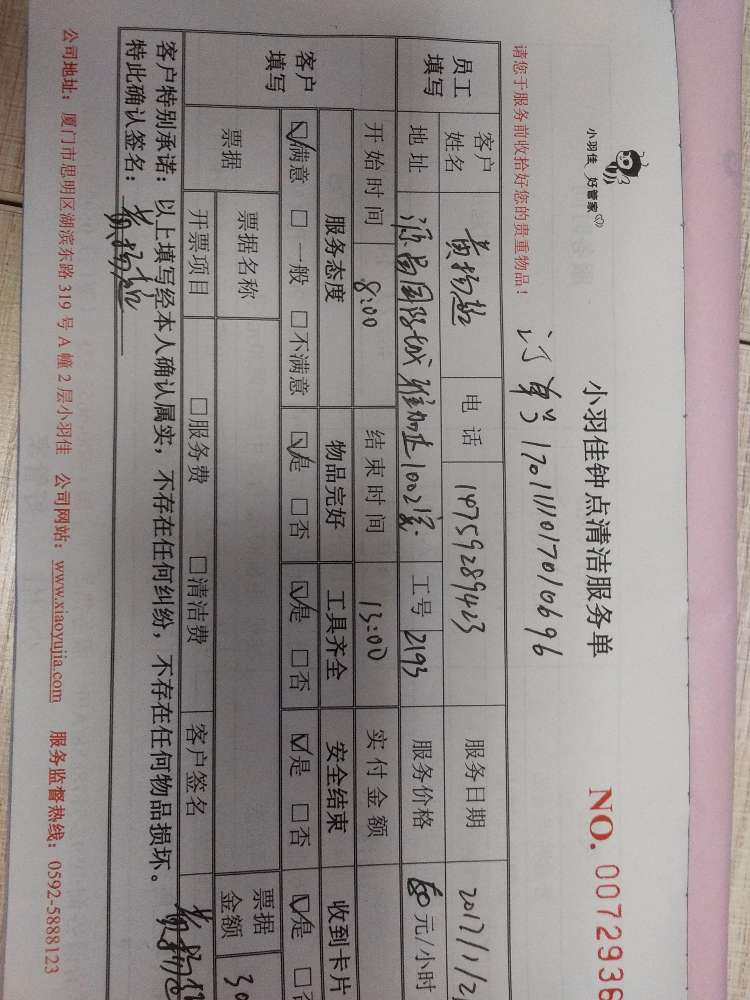 小羽佳 好管家
小羽佳钟点清洁服务单
NO. 0072936
请您于服务前收拾好您的贵重物品！
订单号 1701111017010696
员工填写
客户姓名
电话 14759289423
服务日期 2017/1/2
地址 源昌国际城 1002室
工号 2193
服务价格 元/小时
客户填写
开始时间 8:00
结束时间 13:00
实付金额
服务态度 物品完好 工具齐全 安全结束 收到卡片
☑满意 □一般 □不满意 ☑是 □否 ☑是 □否 ☑是 □否 ☑是 □否
票据
票据名称
票据金额 30
开票项目 □服务费 □清洁费
客户签名
客户特别承诺：以上填写经本人确认属实，不存在任何纠纷，不存在任何物品损坏。
特此确认签名：
公司地址：厦门市思明区湖滨东路 319 号 A 幢 2 层小羽佳 公司网站：www.xiaoyujia.com 服务监督热线：0592-5888123